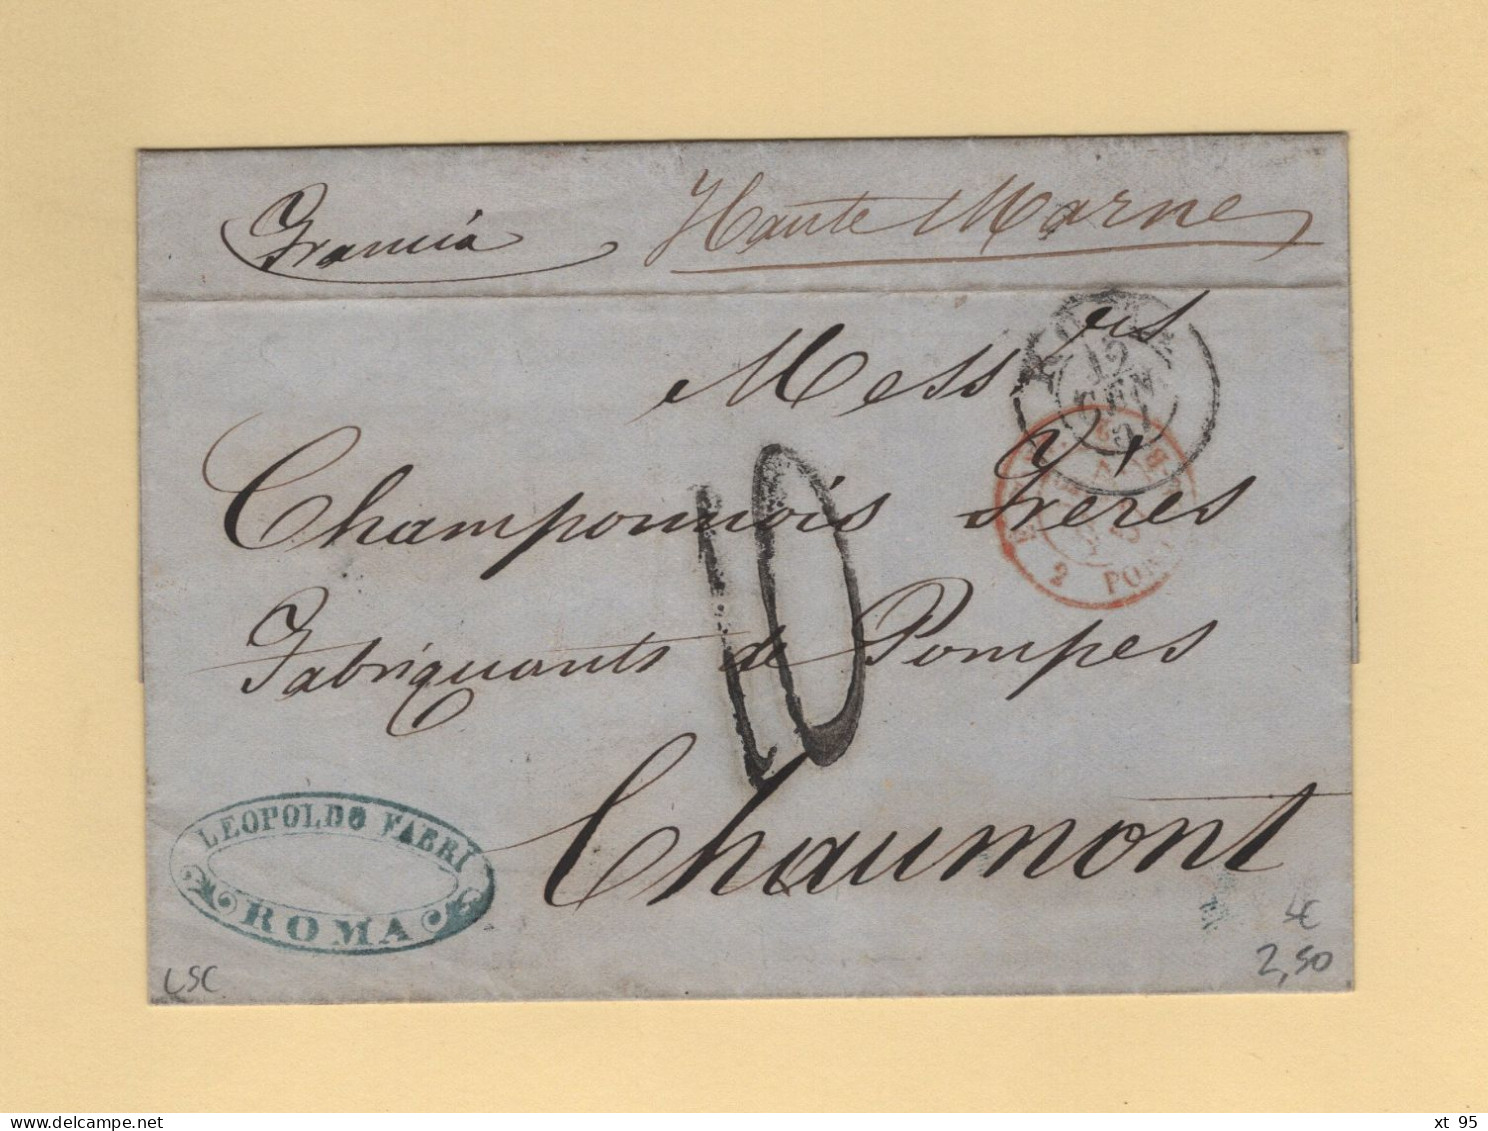 Francia
Haute Marne
Mess.urs
Champonnois Frères
Fabriquants de Pompes
Chaumont
10
ROMA
12
GEN
57
2 PONT
LEOPOLDO FABRI
ROMA
LSC
2,50
xt 95